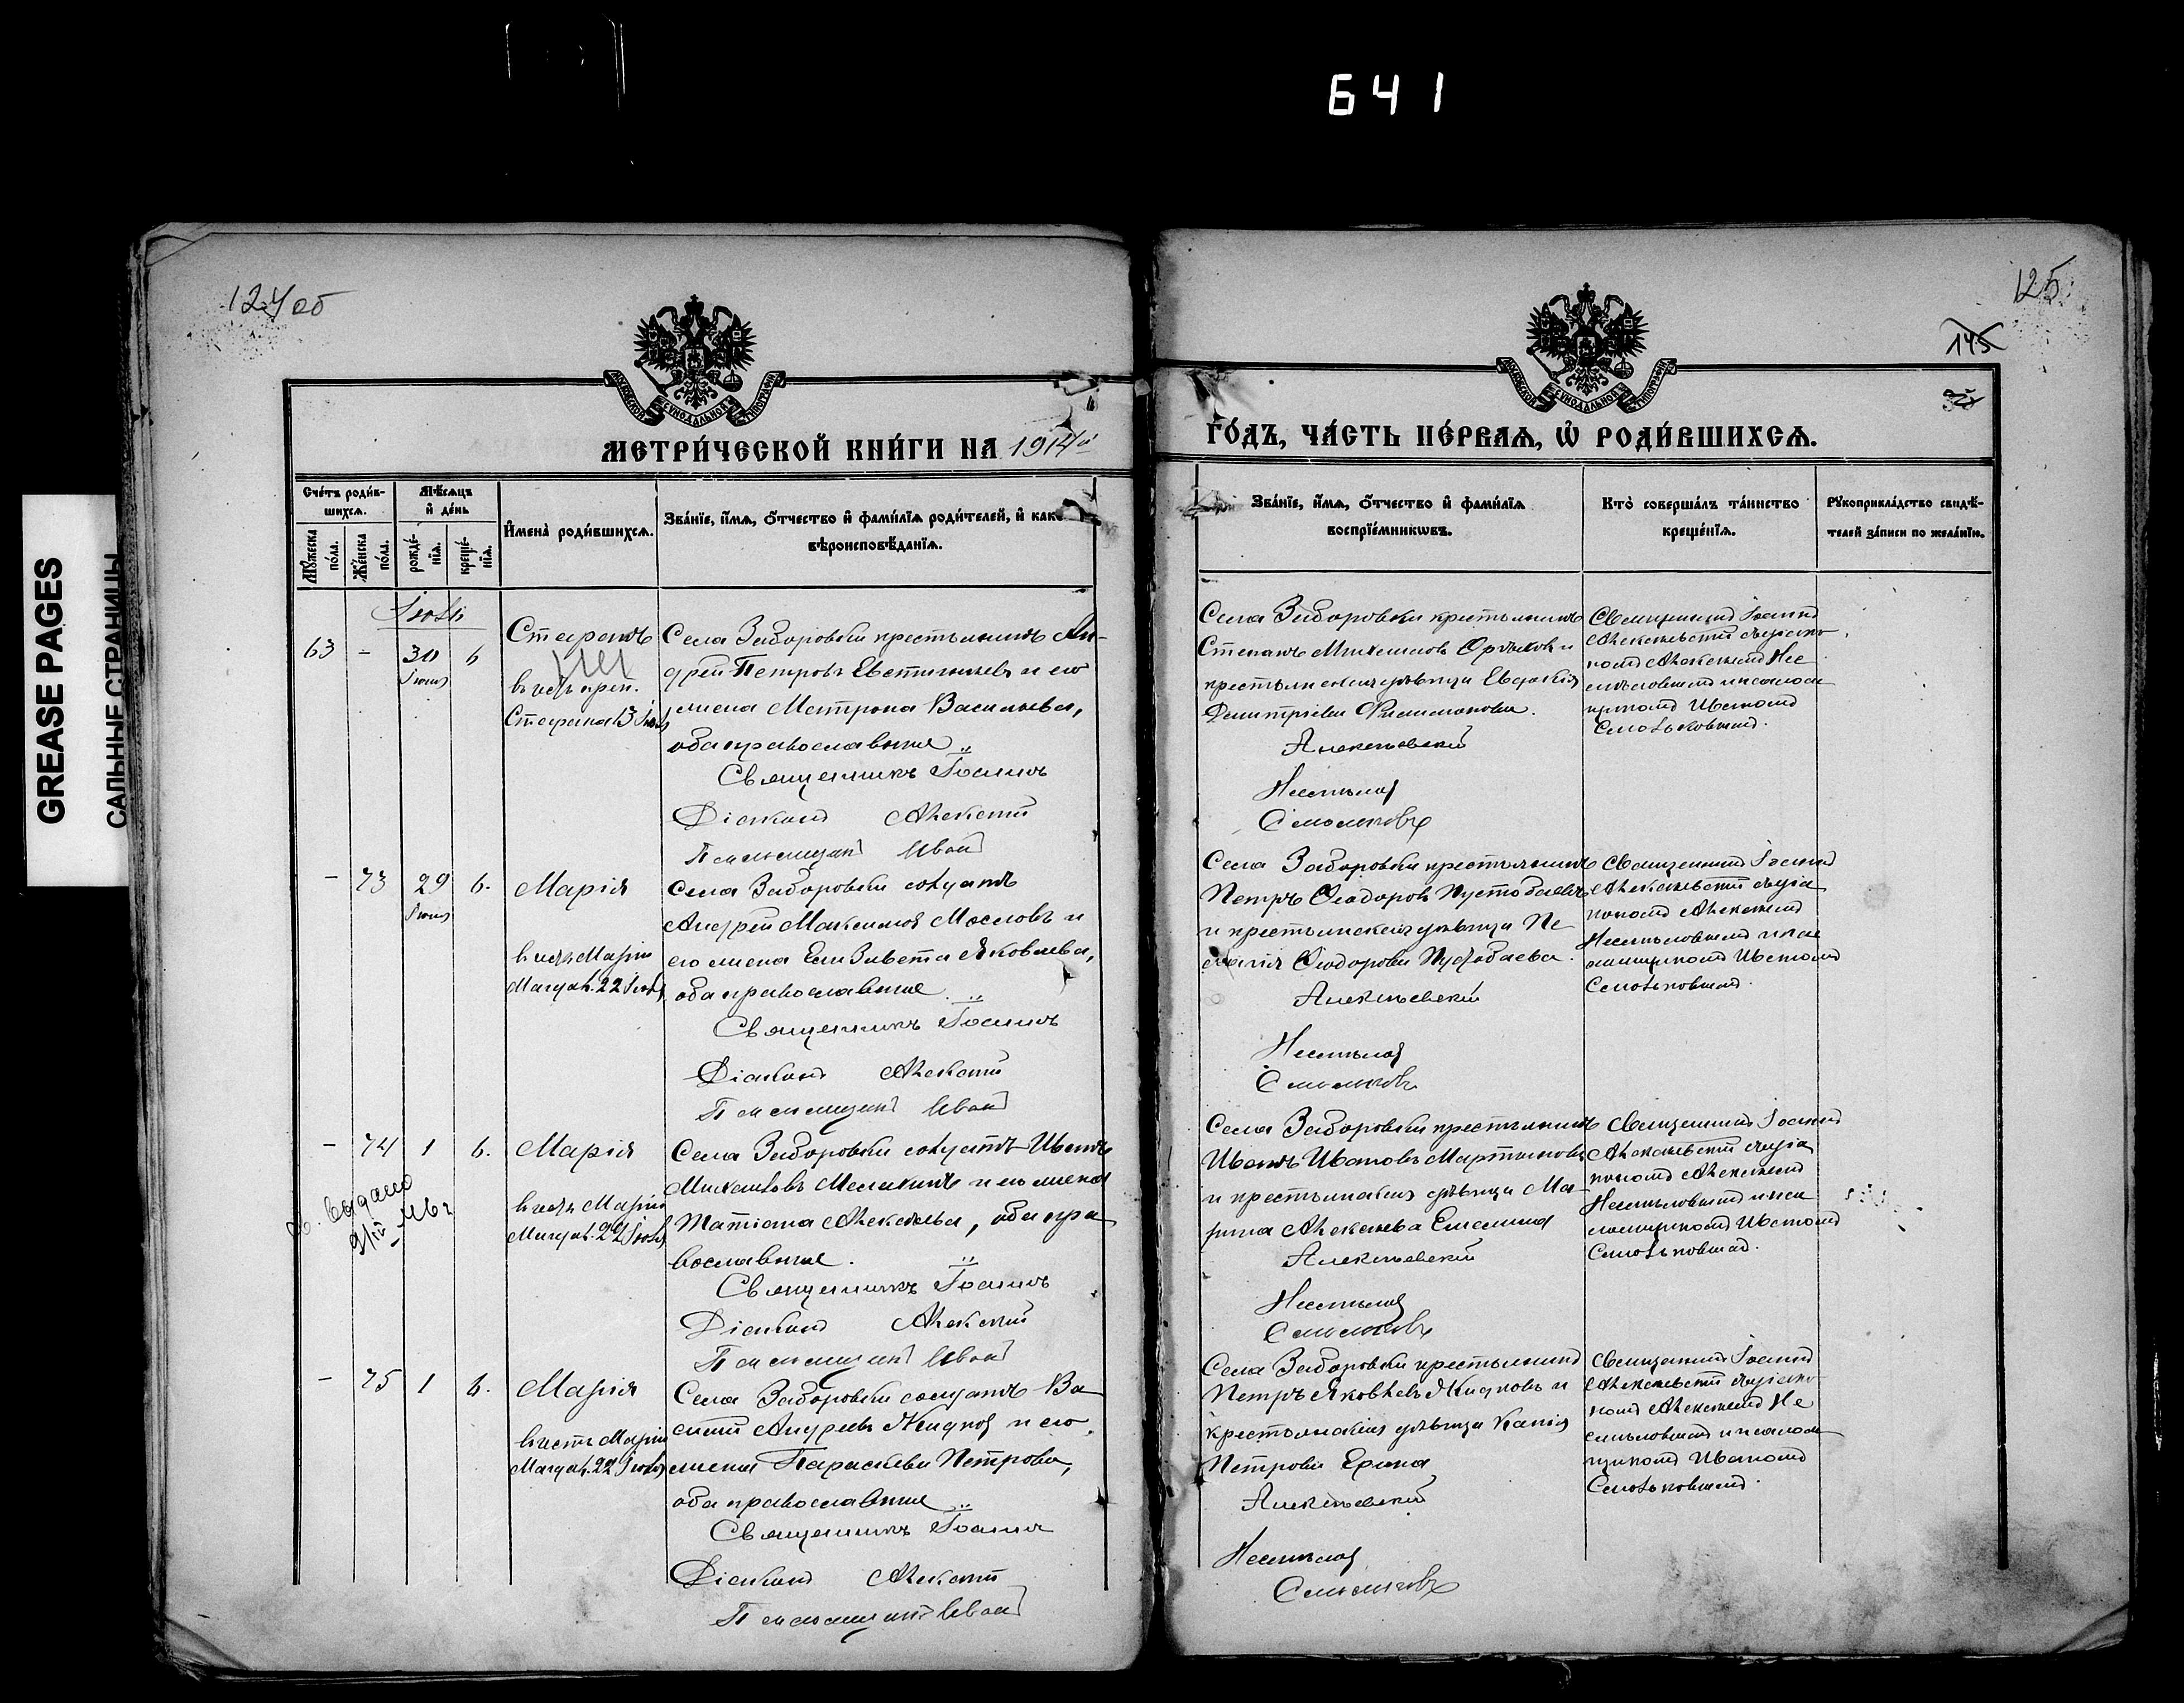 641
124об
125
145
GREASE PAGES
САЛЬНЫЕ СТРАНИЦЫ
МОСКОВСКОЙ СѴНОДАЛЬНОЙ ТИПОГРАФІИ
МОСКОВСКОЙ СѴНОДАЛЬНОЙ ТИПОГРАФІИ
МЕТРИ́ЧЕСКОЙ КНИ́ГИ НА 1914й
ГО́ДЪ, ЧА́СТЬ ПЕ́РВАѦ, Ѿ РОДИ́ВШИХСѦ.
Сче́тъ роди́в-
шихсѧ.
Мꙋ́жеска по́ла.
Же́нска по́ла.
Мѣ́сѧцъ
и҆ де́нь
рожде́-
нїѧ.
креще́-
нїѧ.
И҆мена̀ роди́вшихсѧ.
Зва́нїе, и҆́мѧ, ѻ҆́тчество и҆ фами́лїѧ роди́телей, и҆ како
вѣроисповѣ́данїѧ.
Зва́нїе, и҆́мѧ, ѻ҆́тчество и҆ фами́лїѧ
воспрїе́мникѡвъ.
Кто̀ соверша́лъ та́инство
креще́нїѧ.
Рꙋкоприкла́дство свидѣ́-
телей за́писи по жела́нїю.
Іюль
63 - 30 6
Іюня
Стефанъ
въ честь преп.
Стефана 13 Іюля
Села Заборовки крестьянинъ Ан-
дрей Петровъ Евстигнеевъ и его
жена Матрона Васильева,
оба православные
Священникъ Іоаннъ
Діаконъ Алексѣй
Псаломщикъ Иванъ
Села Заборовки крестьянинъ
Степанъ Михаиловъ и
крестьянская дѣвица Евдокія
Димитріева
Алексѣевскій
Несмѣловъ
Смольковъ
Священникъ Іоаннъ
Алексѣевскій съ діако-
номъ Алексѣемъ Не
смѣловымъ и псалом
щикомъ Иваномъ
Смольковымъ.
- 73 29 6.
Іюня
Марія
въ честь Маріи
Магдал. 22 Іюля
Села Заборовки солдатъ
Андрей Максимовъ Масловъ и
его жена Елизавета Яковлева,
оба православные
Священникъ Іоаннъ
Діаконъ Алексѣй
Псаломщикъ Иванъ
Села Заборовки крестьянинъ
Петръ Ѳеодоровъ Пустобаевъ
и крестьянская дѣвица Пе
лагія Ѳеодорова Пустобаева.
Алексѣевскій
Несмѣловъ
Смольковъ
Священникъ Іоаннъ
Алексѣевскій съ діа
кономъ Алексѣемъ
Несмѣловымъ и пса
ломщикомъ Иваномъ
Смольковымъ.
- 74 1 6.
выдано
Марія
въ честь Маріи
Магдал. 22 Іюля
Села Заборовки солдатъ Иванъ
Михаиловъ и его жена
Татіана Алексѣева, оба пра
вославные.
Священникъ Іоаннъ
Діаконъ Алексѣй
Псаломщикъ Иванъ
Села Заборовки крестьянинъ
Иванъ Ивановъ Мартыновъ
и крестьянская дѣвица Ма
рина Алексѣева
Алексѣевскій
Несмѣловъ
Смольковъ
Священникъ Іоаннъ
Алексѣевскій съ діа
кономъ Алексѣемъ
Несмѣловымъ и пса
ломщикомъ Иваномъ
Смольковымъ.
- 75 1 6.
Марія
въ честь Маріи
Магдал. 22 Іюля
Села Заборовки солдатъ Ва
силій Андреевъ Жидковъ и его
жена Параскева Петрова,
оба православные
Священникъ Іоаннъ
Діаконъ Алексѣй
Псаломщикъ Иванъ
Села Заборовки крестьянинъ
Петръ Яковлевъ Жидковъ и
крестьянская дѣвица
Петрова
Алексѣевскій
Несмѣловъ
Смольковъ
Священникъ Іоаннъ
Алексѣевскій съ діако-
номъ Алексѣемъ Не
смѣловымъ и псалом
щикомъ Иваномъ
Смольковымъ.